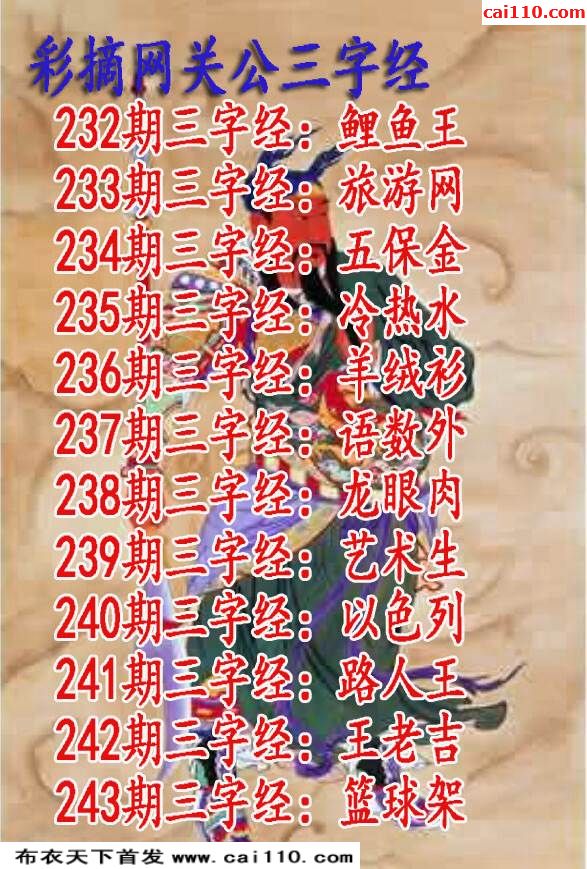 cai110.com
彩摘网关公三字经
232期三字经：鲤鱼王
233期三字经：旅游网
234期三字经：五保金
235期三字经：冷热水
236期三字经：羊绒衫
237期三字经：语数外
238期三字经：龙眼肉
239期三字经：艺术生
240期三字经：以色列
241期三字经：路人王
242期三字经：王老吉
243期三字经：篮球架
布衣天下首发 www.cai110.com